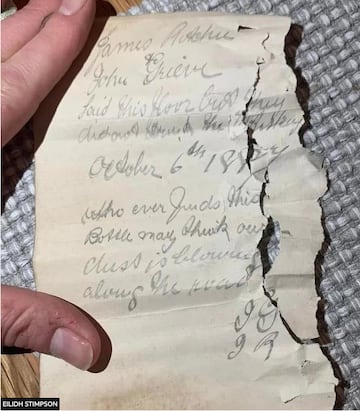 James Ritchie
John Grieve
laid this floor but they
did not drink the whiskey
October 6th 1887
who ever finds this
Bottle may think our
dust is blowing
along the road
J G
J R
EILIDH STIMPSON